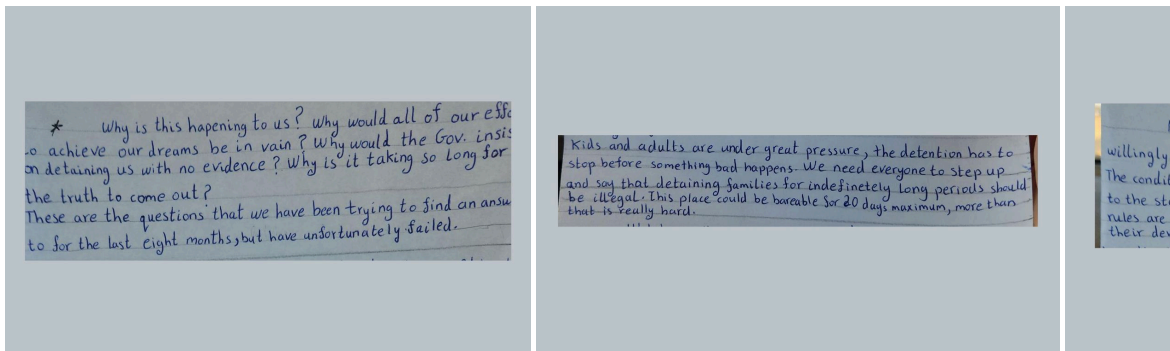 * Why is this hapening to us? Why would all of our effo
to achieve our dreams be in vain? Why would the Gov. insis
on detaining us with no evidence? Why is it taking so long for
the truth to come out?
These are the questions that we have been trying to find an answ
to for the last eight months, but have unfortunately failed.
Kids and adults are under great pressure, the detention has to
stop before something bad happens. We need everyone to step up
and say that detaining families for indefinetely long periods should
be illegal. This place could be bareable for 20 days maximum, more than
that is really hard.
willingly
The condit
to the sta
rules are
their dev